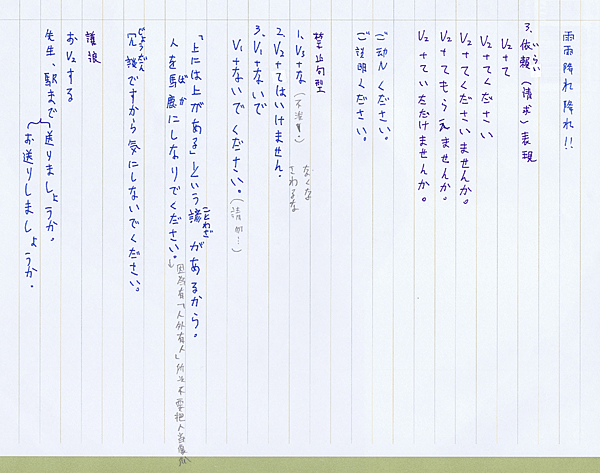 雨雨降れ降れ!!
3、依頼(請求)表現
いらい
V2+て
V2+てください
V2+てくださいませんか。
V2+てもらえませんか。
V2+ていただけませんか。
ご动ルください。
ご説明ください。
禁止句型
1、V3+な(不准..)
なくな
さわるな
2、V2+てはいけません.
3、V1+ないで
V1+ないでください。(請勿…)
「上には上がある」という諺があるから。
ことわざ
人を馬鹿にしないでください。
ばか
因為有「人外有人」所以不要把人當傻瓜
冗談ですから気にしないでください。
じょうだん
謙讓
おV2する
先生、駅まで送りましょうか。
お送りしましょうか.